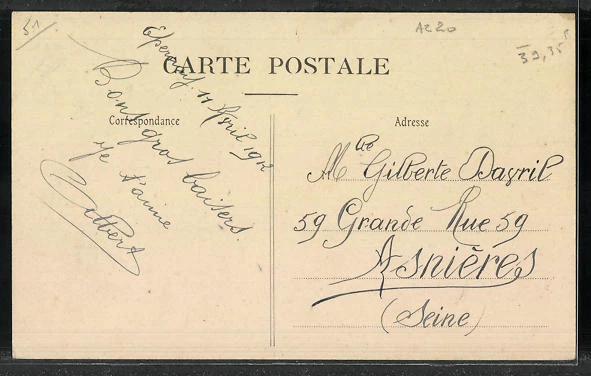 51
AC20
39,35
CARTE POSTALE
Correspondance
Epernay 11 Avril 1912
Bons gros baisers
Je t'aime
Albert
Adresse
Mlle Gilberte Dagril
59 Grande Rue 59
Asnières
(Seine)